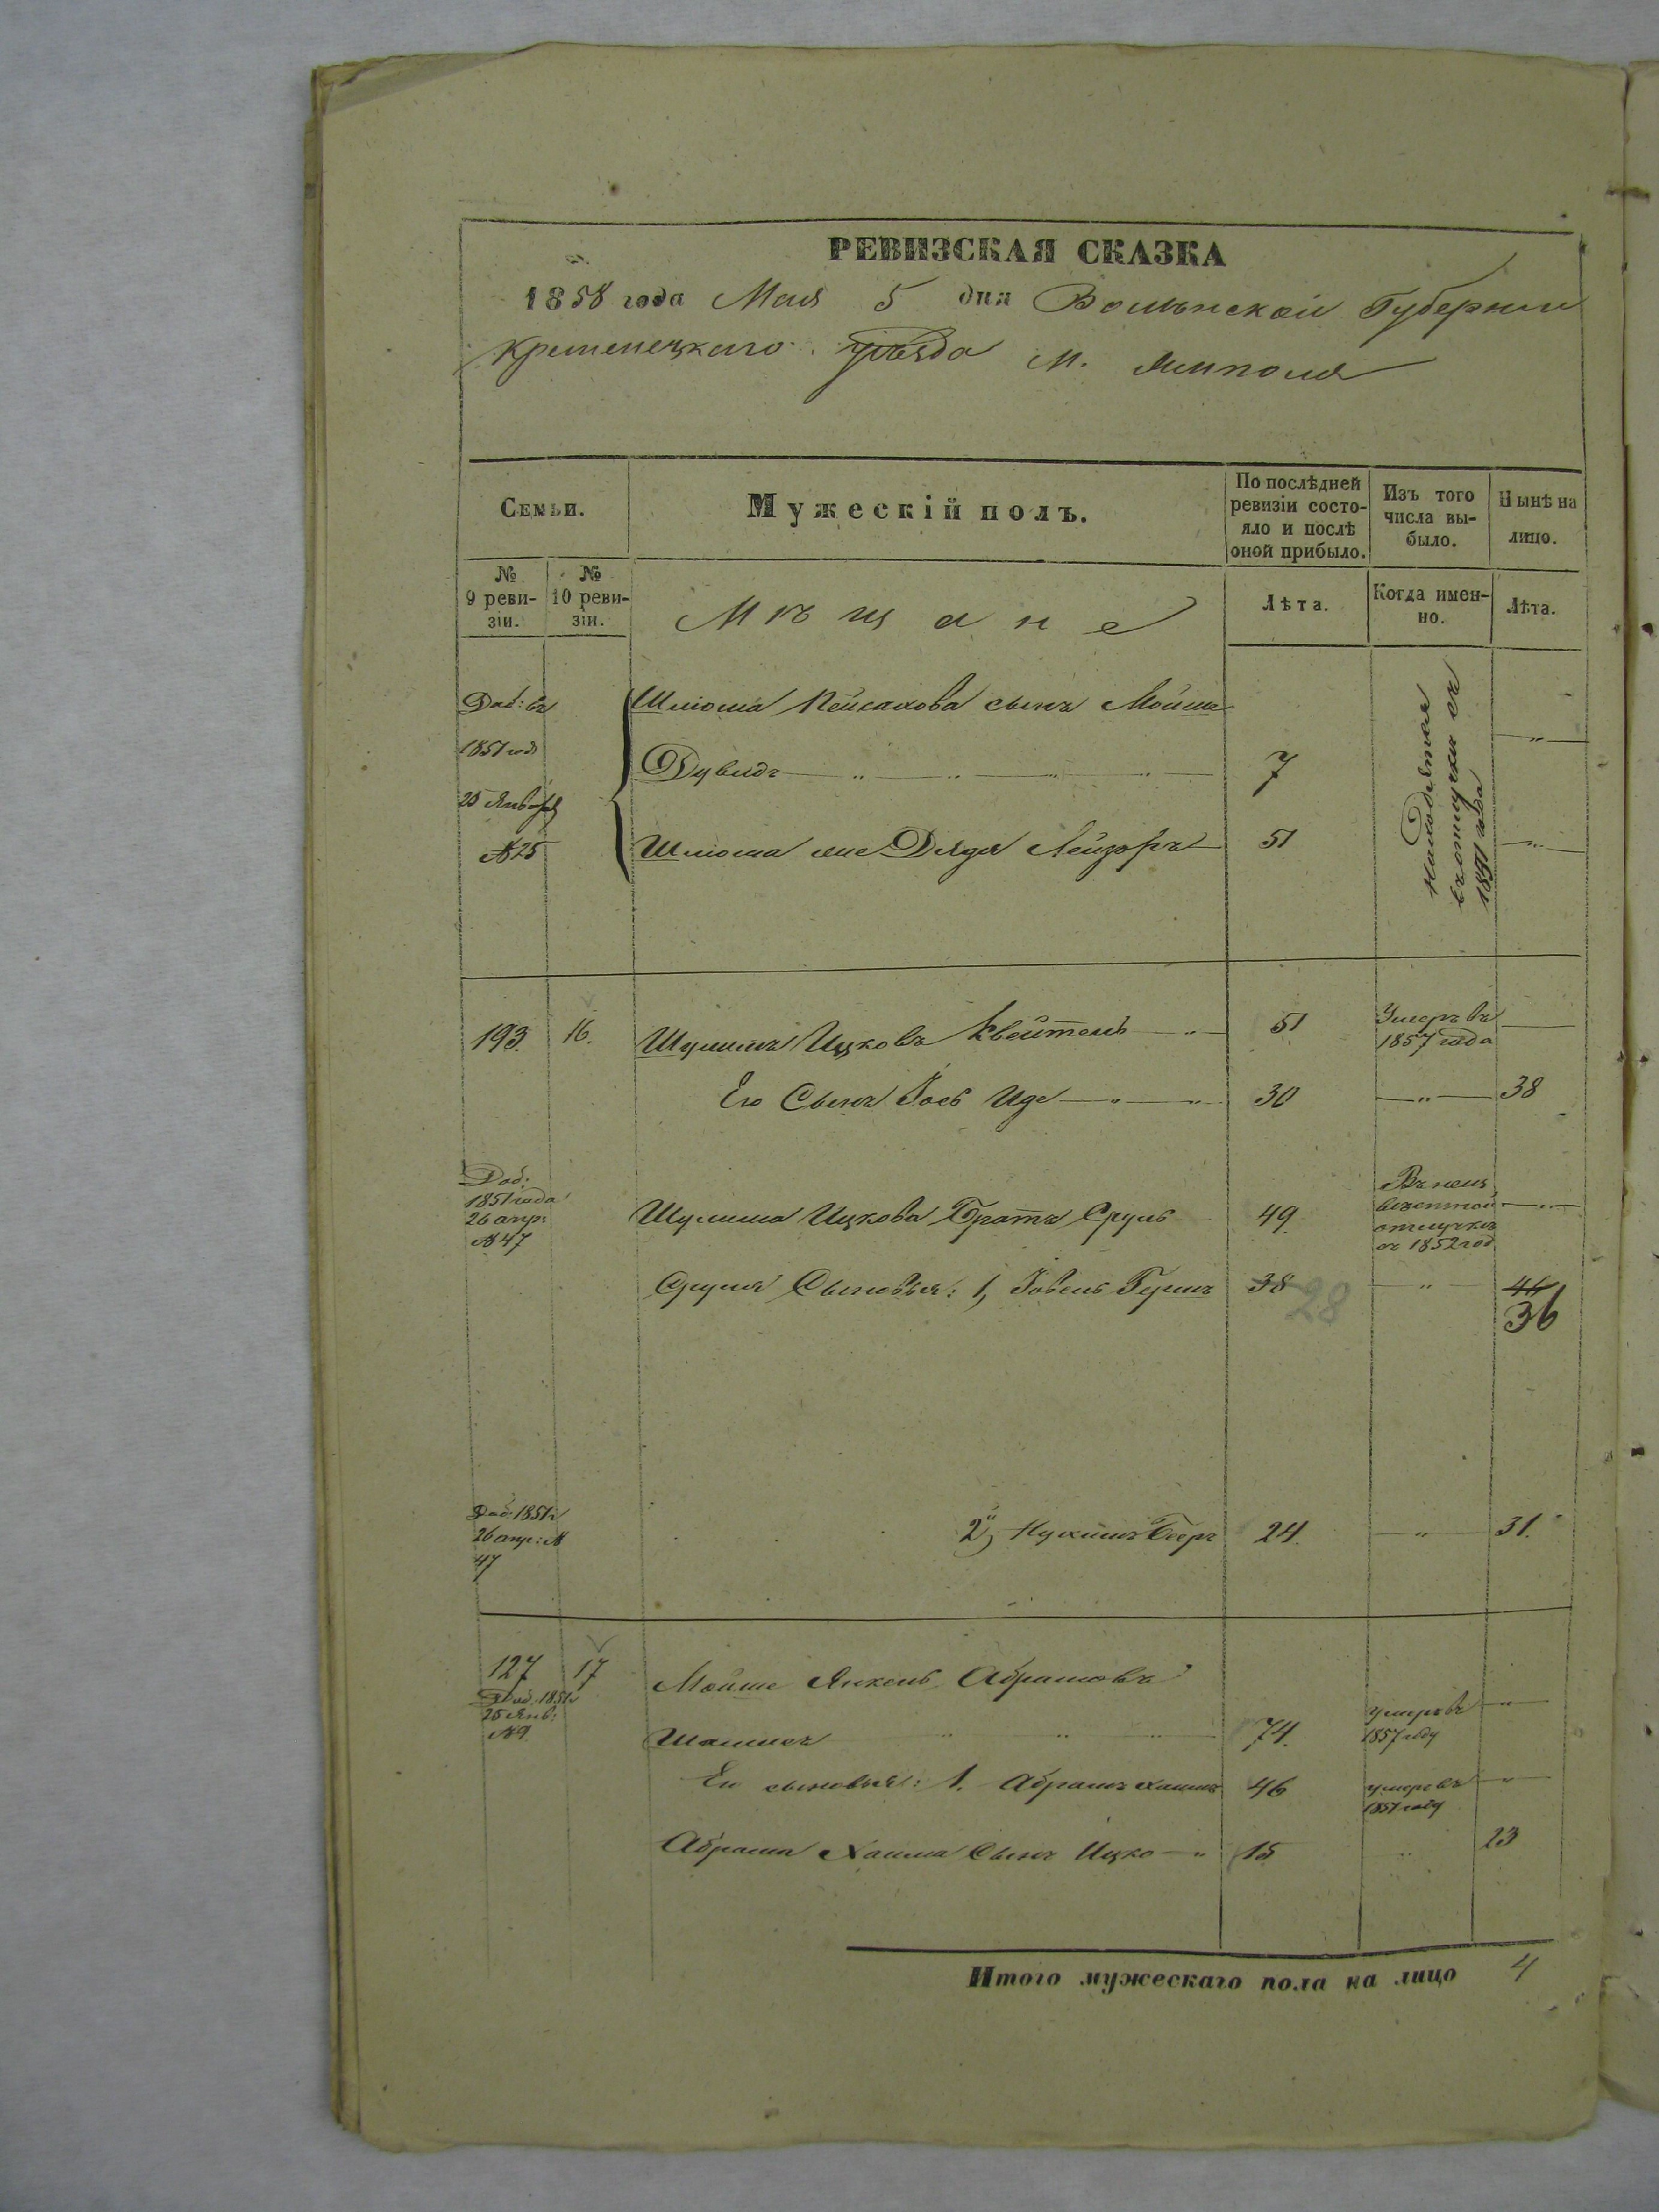 РЕВИЗСКАЯ СКАЗКА
1858 года Мая 5 дня Волынской Губернии
Кременецкаго уѣзда м. Ямполя
Семьи.
Мужескій полъ.
По послѣдней ревизіи состо-
яло и послѣ
оной прибыло.
Изъ того
числа вы-
было.
Нынѣ на
лицо.
№
9 реви-
зіи.
№
10 реви-
зіи.
Мѣщане
Лѣта.
Когда имен-
но.
Лѣта.
Доб: въ
1851 год
25 Января
№ 25
Шлиома Пейсахова сынъ Мойше
Дувидъ — „ — „ — „ — „ — 7 — „ —
Шлиома Дядя Лейзоръ 51 — „ —
Находятся
въ отлучки съ
1851 года
193. 16. Шулимъ Ицковъ Квейтель — „ — 51 Умеръ въ
1857 года
Его Сынъ Іось Иде — „ — „ 30 — „ — 38
Доб:
1851 года
26 апр:
№ 47
Шулима Ицкова Братъ Сруль 49
отлучкъ
съ 1852 год
Сруля Сыновья: 1, Іовель Гершъ 38 28 „ 46
36
Доб: 1851 г
26 апр: №
47
2й, Нухимъ Беръ 24. — „ — 31.
127 17 Мойше Янкель Абрамовъ
Доб. 1851 г
25 Янв:
№ 9
74. умеръ въ
1857 году — „ —
Его сыновья: 1. Абрамъ Хаимъ 46 умеръ въ
1851 году — „ —
Абрама Хаима Сынъ Ицко — „ 15 „ 23
Итого мужескаго пола на лицо 4